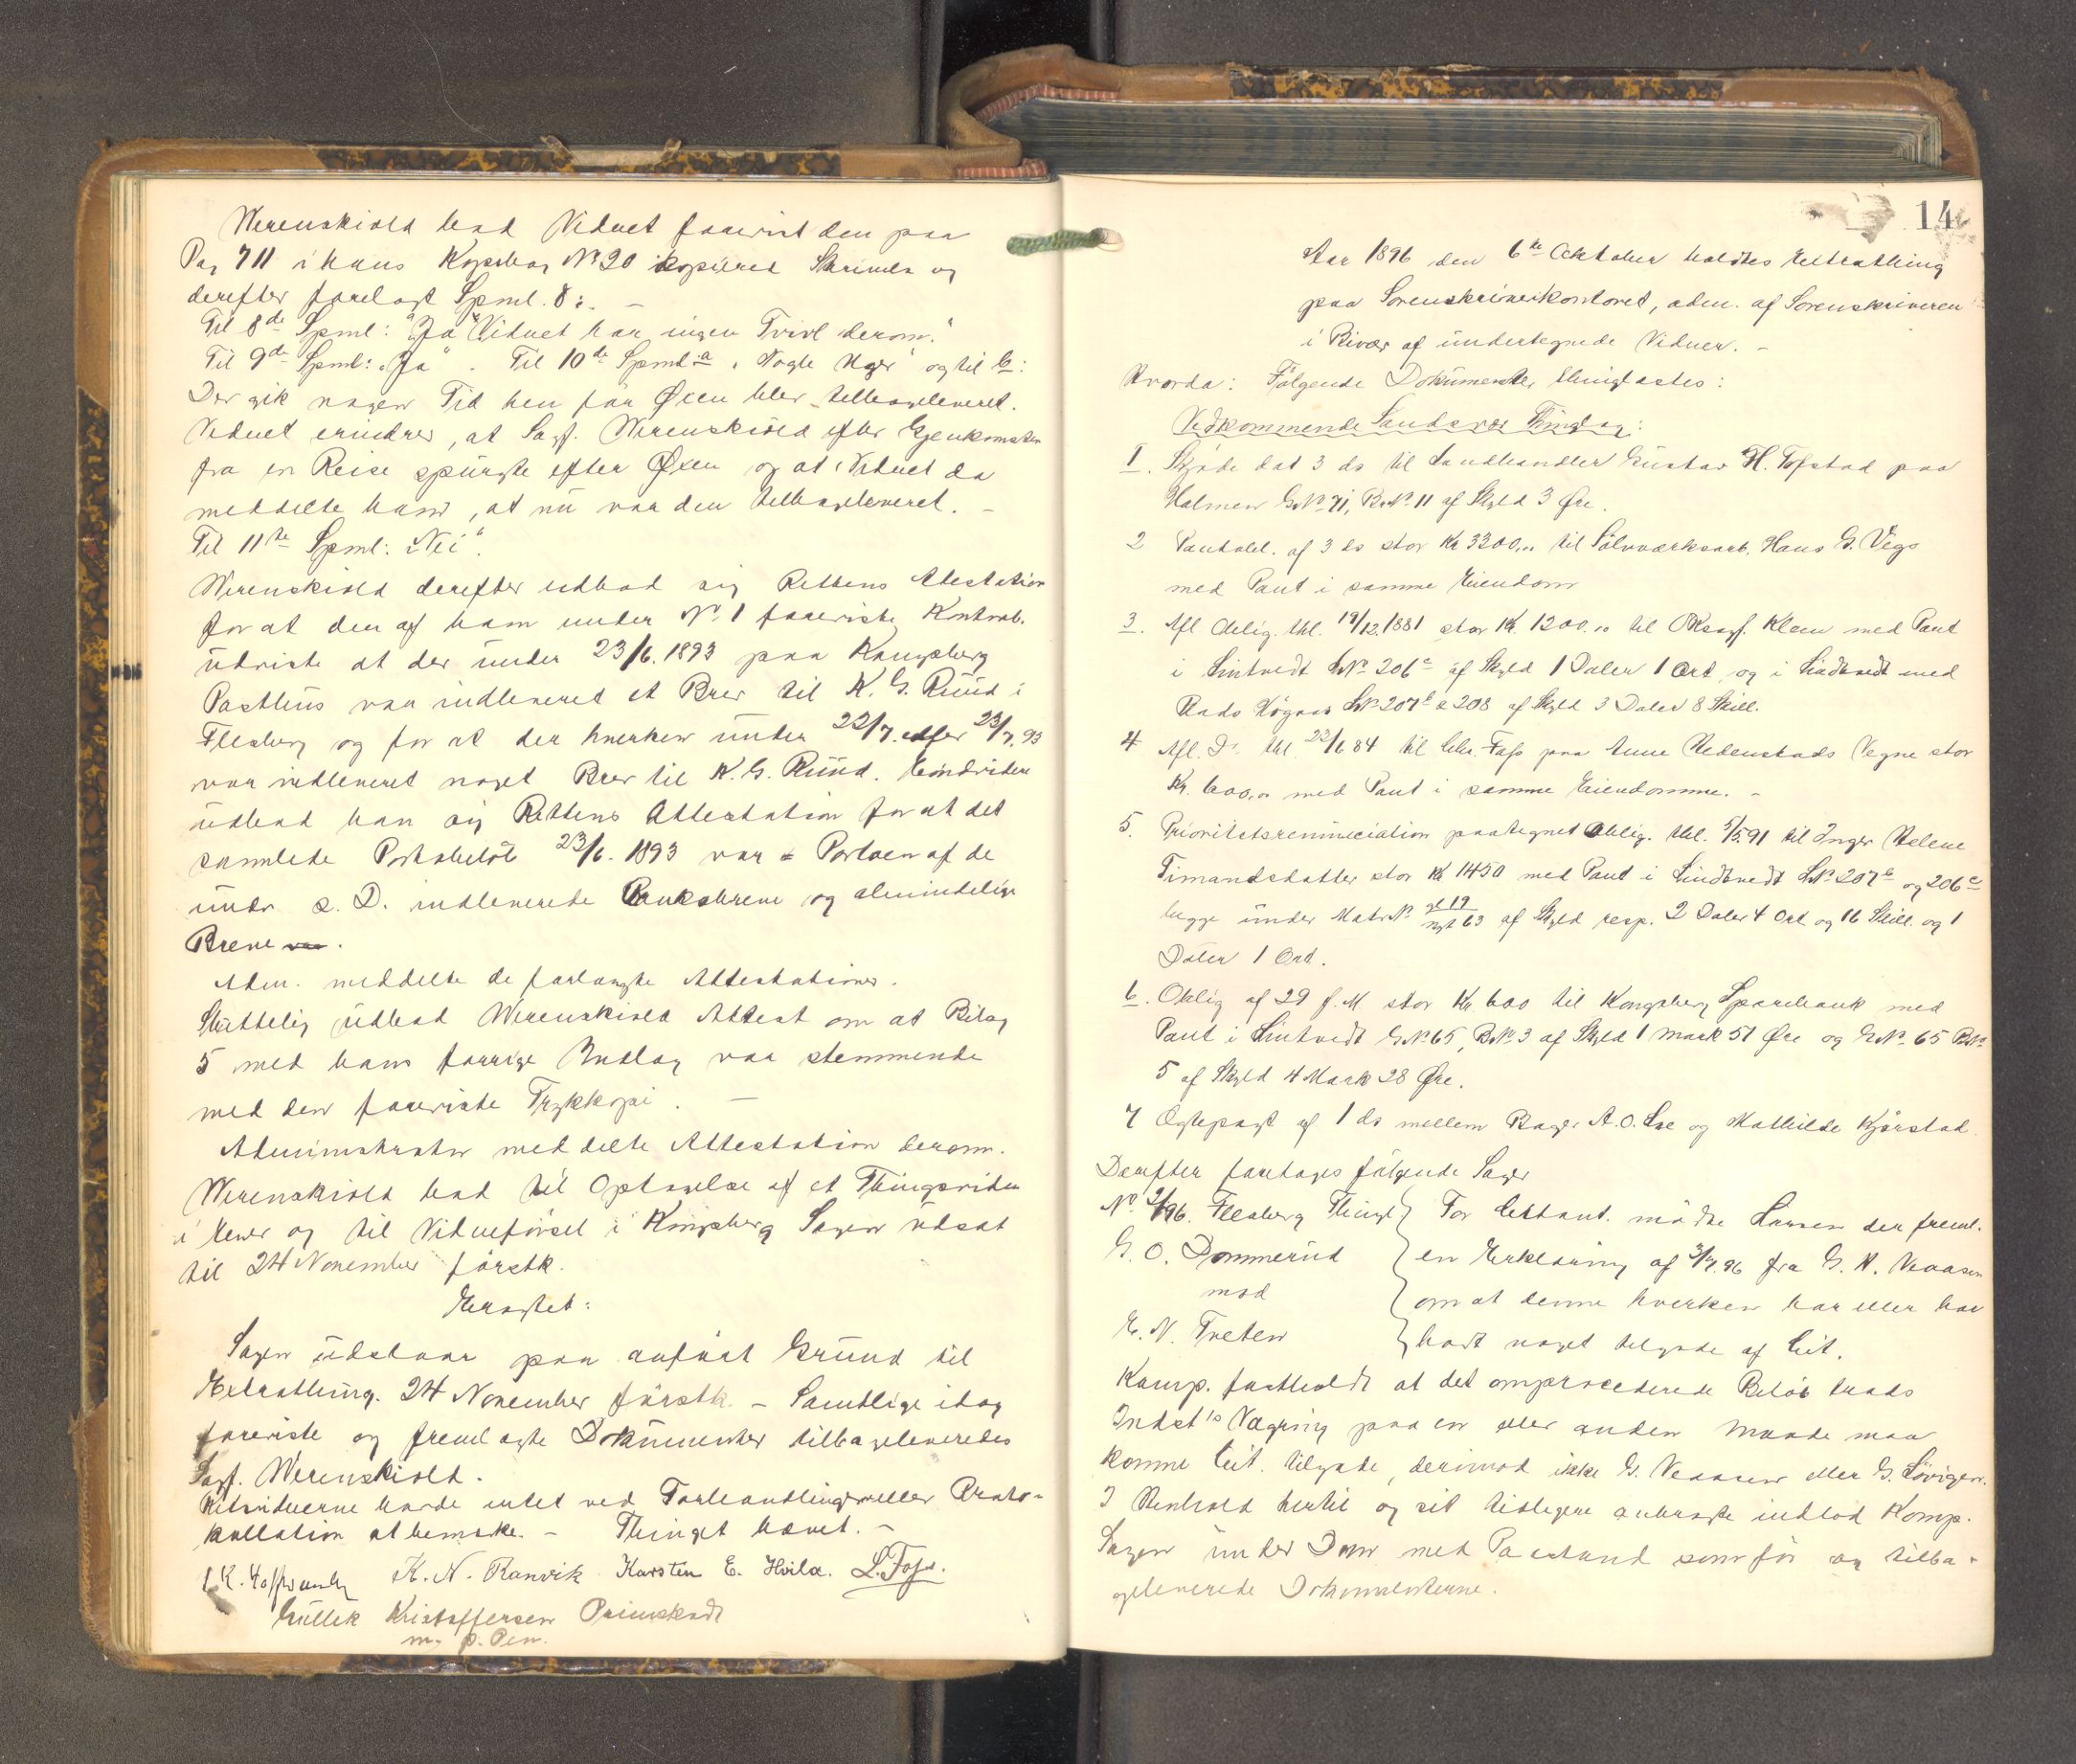 Werenskiold bad Vidnet forevist den paa
Pag 711 i hans Kopibog No 20 kopieret Skrivelse og
derefter forelagt Spml. 8:. –
Til 8de Spml: "Ja" "Vidnet har ingen Tvivl derom."
Til 9de Spml: "Ja". Til 10de Spml: a "Nogle Uger" og til b:
Der gik nogen Tid hen før Øxen blev tilbageleveret.
Vidnet erindrer, at Sagf. Werenskiold efter Gjenkomsten
fra en Reise spurgte efter Øxen og at Vidnet da
meddelte ham, at nu var den tilbageleveret. –
Til 11te Spml: "Nei".
Werenskiold derefter udbad sig Rettens Atestation
for at den af ham under No 1 foreviste Kontrab.
udviste at der under 23/6. 1893 paa Kongsberg
Posthus var indleveret et Brev til K. G. Ruud i
Flesberg og for at der hverken under 22/7. eller 23/7. 93
var indleveret noget Brev til K. G. Ruud. Endvidere
udbad han sig Rettens Attestation for at det
samlede Portobeløb 23/6. 1893 var = Portoen af de
under s. D. indleverede Pengebreve og almindelige
Breve.
Adm. meddelte de forlangte Attestationer.
Sluttelig udbad Werenskiold Attest om at Bilag
5 med hans forrige Indlæg var stemmende
med den foreviste Trykkopi. –
Administrator meddelte Attestation derom.
Werenskiold bad til Optagelse af et Thingsvidne
i og til Vidneførsel i Kongsberg Sagen udsat
til 24 November førstk.
Eragtet:
Sagen udstaar paa anført Grund til
Extrathing. 24 November førstk. – Samtlige idag
foreviste og fremlagte Dokumenter tilbageleveredes
Sagf. Werenskiold.
Retsvidnerne havde intet ved Forhandlingen eller Proto-
kollation at bemærke. – Thinget hævet. –
K. N. Ranvik Karsten E. Hvila. L. Foss.
Gullik Kristoffersen
m. p. Pen.
14
Aar 1896 den 6te Oktober holdtes Extrathing
paa Sorenskriverkontoret, adm. af Sorenskriveren
i Bivær af undertegnede Vidner. –
Hvorda: Følgende Dokumenter thinglæstes:
Vedkommende Sandsvær Thinglag:
1. Skjøde dat 3 ds til Landhandler Gustav H. Tofstad paa
Holmen GNo 71, BrNo 11 af Skyld 3 Øre.
2 Pantobl. af 3 ds stor Kr 3300,00 til Sølvværksarb. Hans G. Vego
med Pant i samme Eiendom
3. Afl Oblig. thl. 19/12.1881 stor Kr. 1200.00 til OKsagf. Klem med Pant
i Lintvedt LNo 206c af Skyld 1 Daler 1 Ort og i Lindtvedt med
Rads Høgaas LNo 207b & 208 af Skyld 3 Daler 8 Skill.
4 Afl. Do. thl 23/6 84 til Chr. Foss paa Anne Hedenstads Vegne stor
Kr. 600,00 med Pant i samme Eiendomme. –
5. Prioritetsrenunciation paategnet Oblig. thl. 5/5.91 til Inger Helene
Timandsdatter stor Kr 1450 med Pant i Lindtvedt LNo 207b og 206c
begge under MatrNo gl 19 / nyt 63 af Skyld resp. 2 Daler 4 Ort og 16 Skill. og 1
Daler 1 Ort.
6. Oblig af 29 f. M stor Kr 600 til Kongsberg Sparebank med
Pant i Lintvedt GNo 65, BrNo 3 af Skyld 1 Mark 51 Øre og GNo 65 BrNo
5 af Skyld 4 Mark 28 Øre.
7 Ægtepagt af 1 ds mellem Bager A. O. Lie og Mathilde Kjørstad.
Derefter foretoges følgende Sager
No 2/96. Flesberg Thingl } For Citant. mødte Larsen der freml.
G. O. Dommerud } en Erklæring af 3/7.96 fra G. K. Vaasen
mod } om at denne hverken har eller har
E. N. Treten } havt noget tilgode af Cit.
Komp. fastholdt at det omprocederede Beløb trods
Indst's Vægring paa en eller anden Maade maa
komme Cit. tilgode, derimod ikke G. Vaasen eller G. Løvigen.
I Henhold hertil og sit tidligere anbragte indlod Komp.
Sagen under Dom med Paastand som før og tilba-
geleverede Dokumenterne.